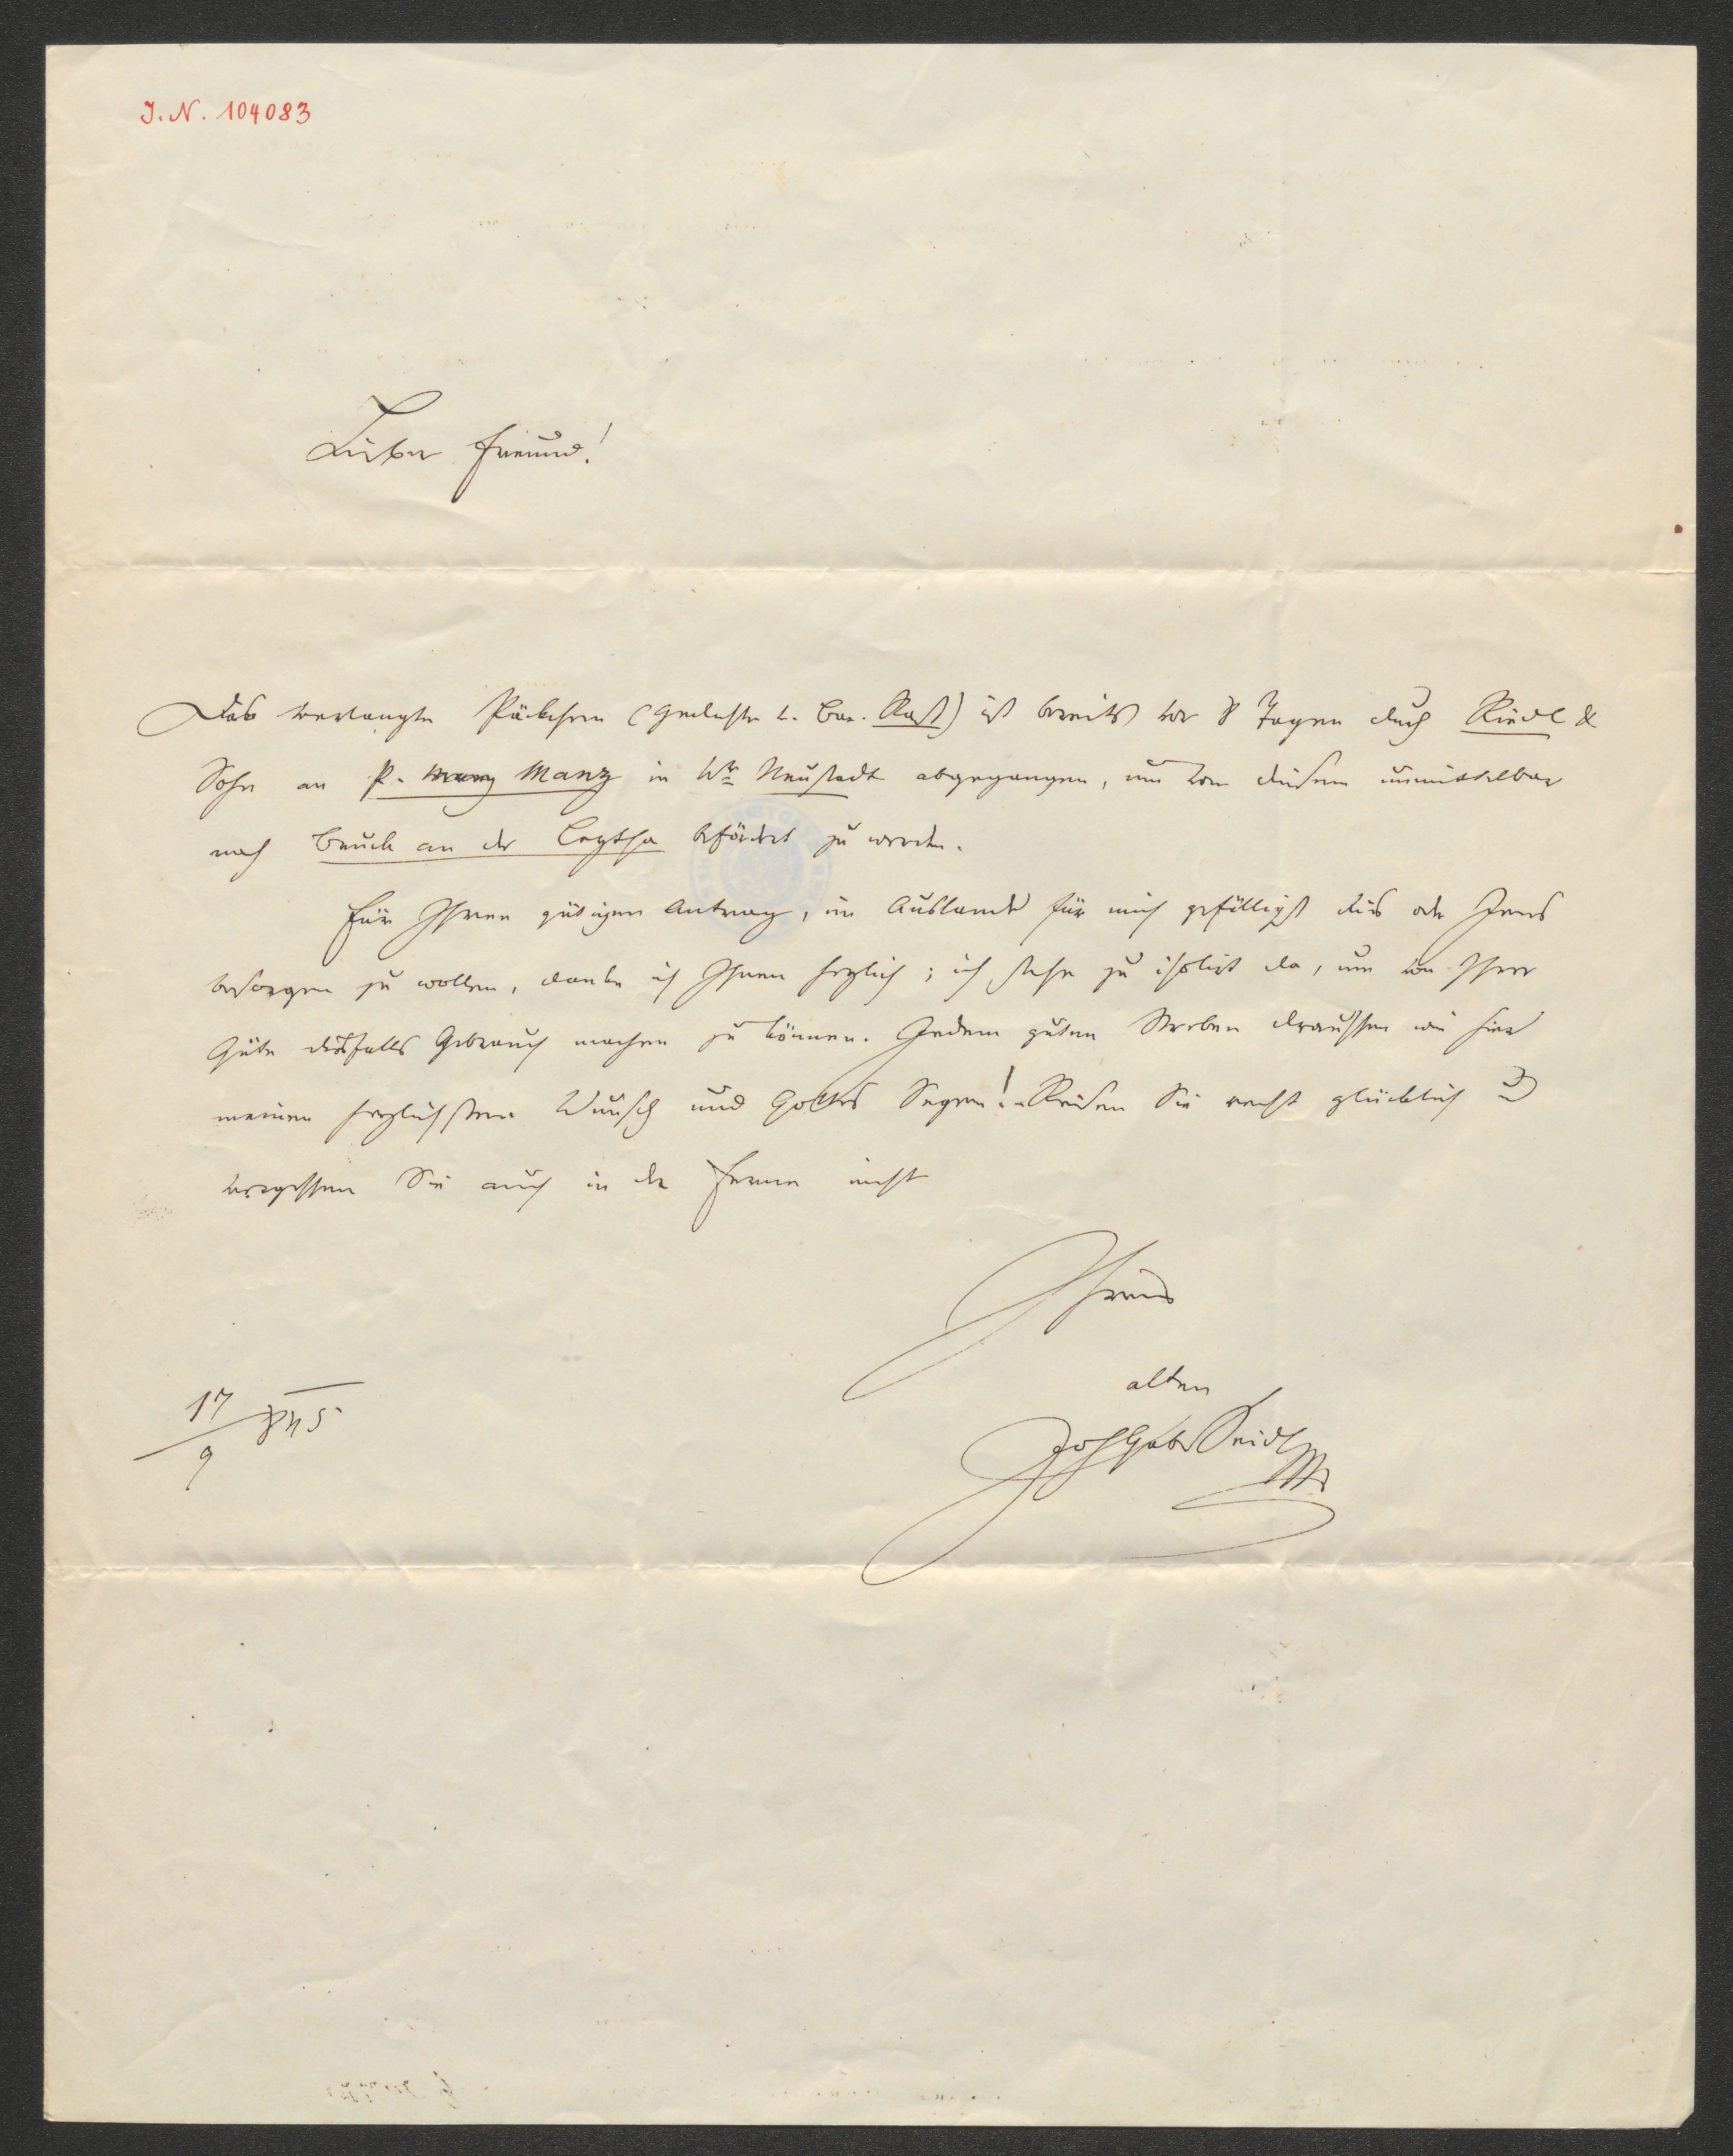 I. N. 104083
Lieber Freund!
Das verlangte Päckchen (Gedichte v. Bar. Kast) ist bereits vor 8 Tagen durch Riedl &
Sohn an P. Manz in Wr Neustadt abgegangen, um von diesem unmittelbar
nach Bruck an der Leytha befördert zu werden.
Für Ihren gütigen Antrag, im Auslande für mich gefälligst dies oder Jenes
besorgen zu wollen, danke ich Ihnen herzlich; ich stehe zu isolirt da, um von Ihrer
Güte diesfalls Gebrauch machen zu können. Jedem guten Streben draussen wie hier
meinen herzlichsten Wunsch und Gottes Segen! Reisen Sie recht glücklich u
vergessen Sie auch in der Ferne nicht
Ihres
alten
Joh Gab Seidl
17/9 845